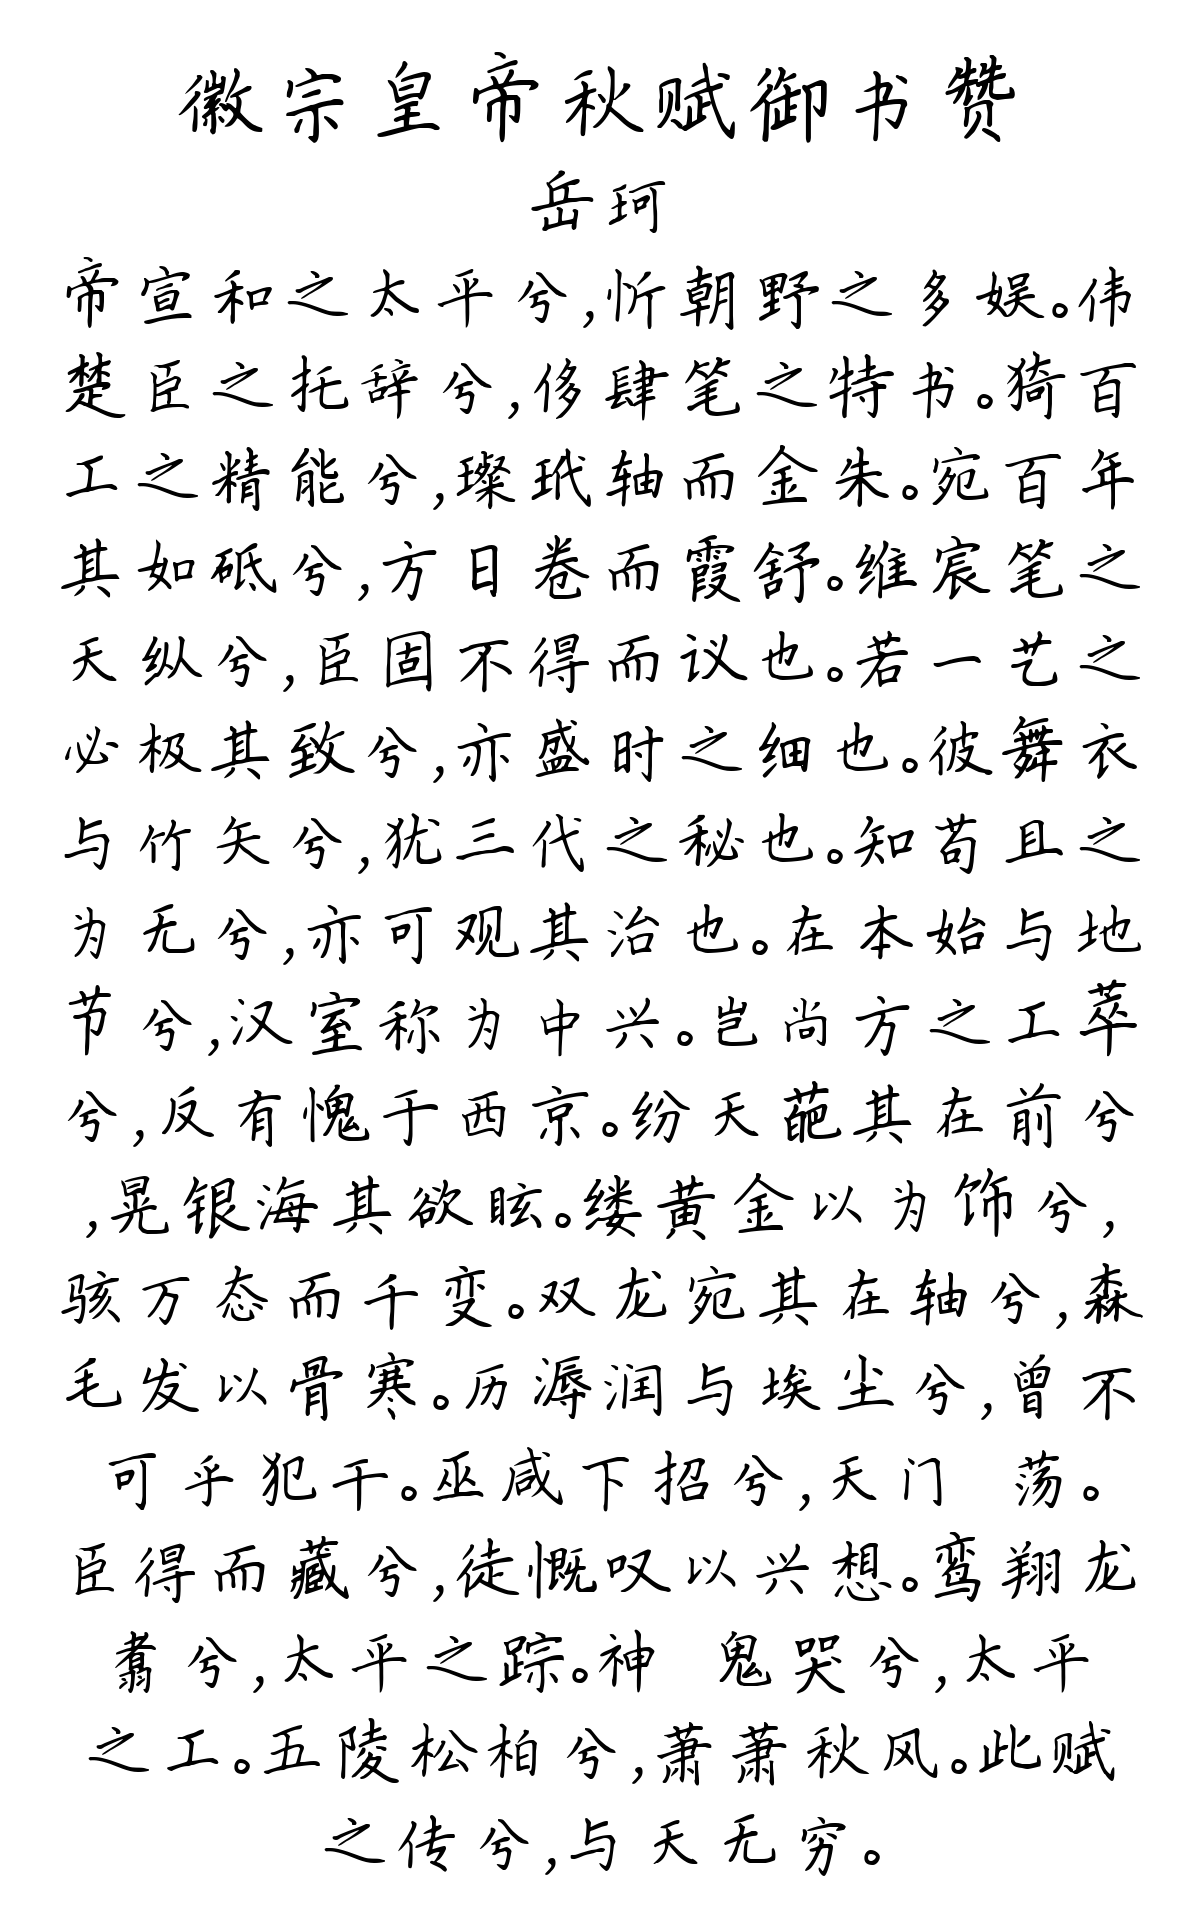 徽宗皇帝秋赋御书赞
岳珂
帝宣和之太平兮,忻朝野之多娱。伟
楚臣之托辞兮,侈肆笔之特书。猗百
工之精能兮,璨玳轴而金朱。宛百年
其如砥兮,方日卷而霞舒。维宸笔之
天纵兮,臣固不得而议也。若一艺之
必极其致兮,亦盛时之细也。彼舞衣
与竹矢兮,犹三代之秘也。知苟且之
为无兮,亦可观其治也。在本始与地
节兮,汉室称为中兴。岂尚方之工萃
兮,反有愧于西京。纷天葩其在前兮
,晃银海其欲眩。缕黄金以为饰兮,
骇万态而千变。双龙宛其在轴兮,森
毛发以骨寒。历溽润与埃尘兮,曾不
可乎犯干。巫咸下招兮,天门 荡。
臣得而藏兮,徒慨叹以兴想。鸾翔龙
翥兮,太平之踪。神 鬼哭兮,太平
之工。五陵松柏兮,萧萧秋风。此赋
之传兮,与天无穷。